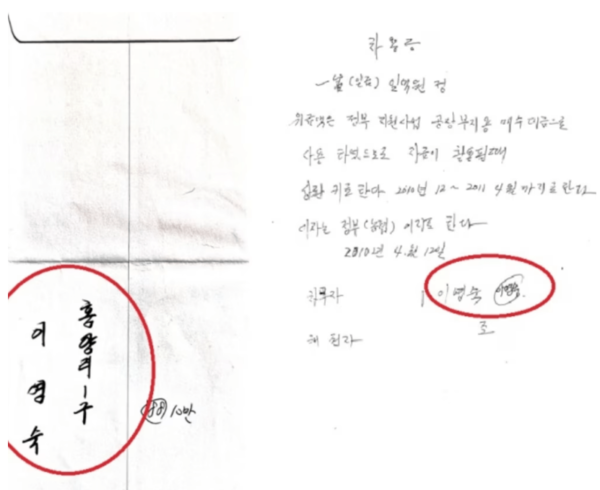 홍양리 1구
이영숙
10만
차용증
일금 (일금) 십억원 정
위금액은 정부 지원사업 공장부지용 매수대금으로
사용 하였으므로 자금이 창출될때
상환 키로 한다 2010년 12 ~ 2011 4월 까지로 한다
이자는 정부(농협) 이자로 한다
2010년 4월 12일
차주자 이영숙 이영숙
조
채권자